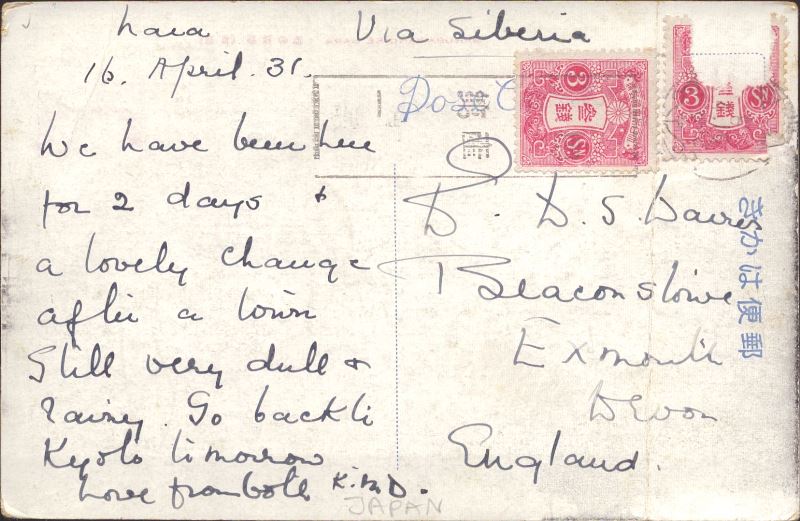 Nara
16. April. 31.
Via Siberia
We have been here
for 2 days &
a lovely change
after a town
Still very dull &
rainy. Go back to
Kyoto tomorrow
Love from both K.M.D.
Post C
D. D. S. Davies
Beaconstowe
Exmouth
Devon
England.
きかは便郵
3
錢叁
3
JAPAN